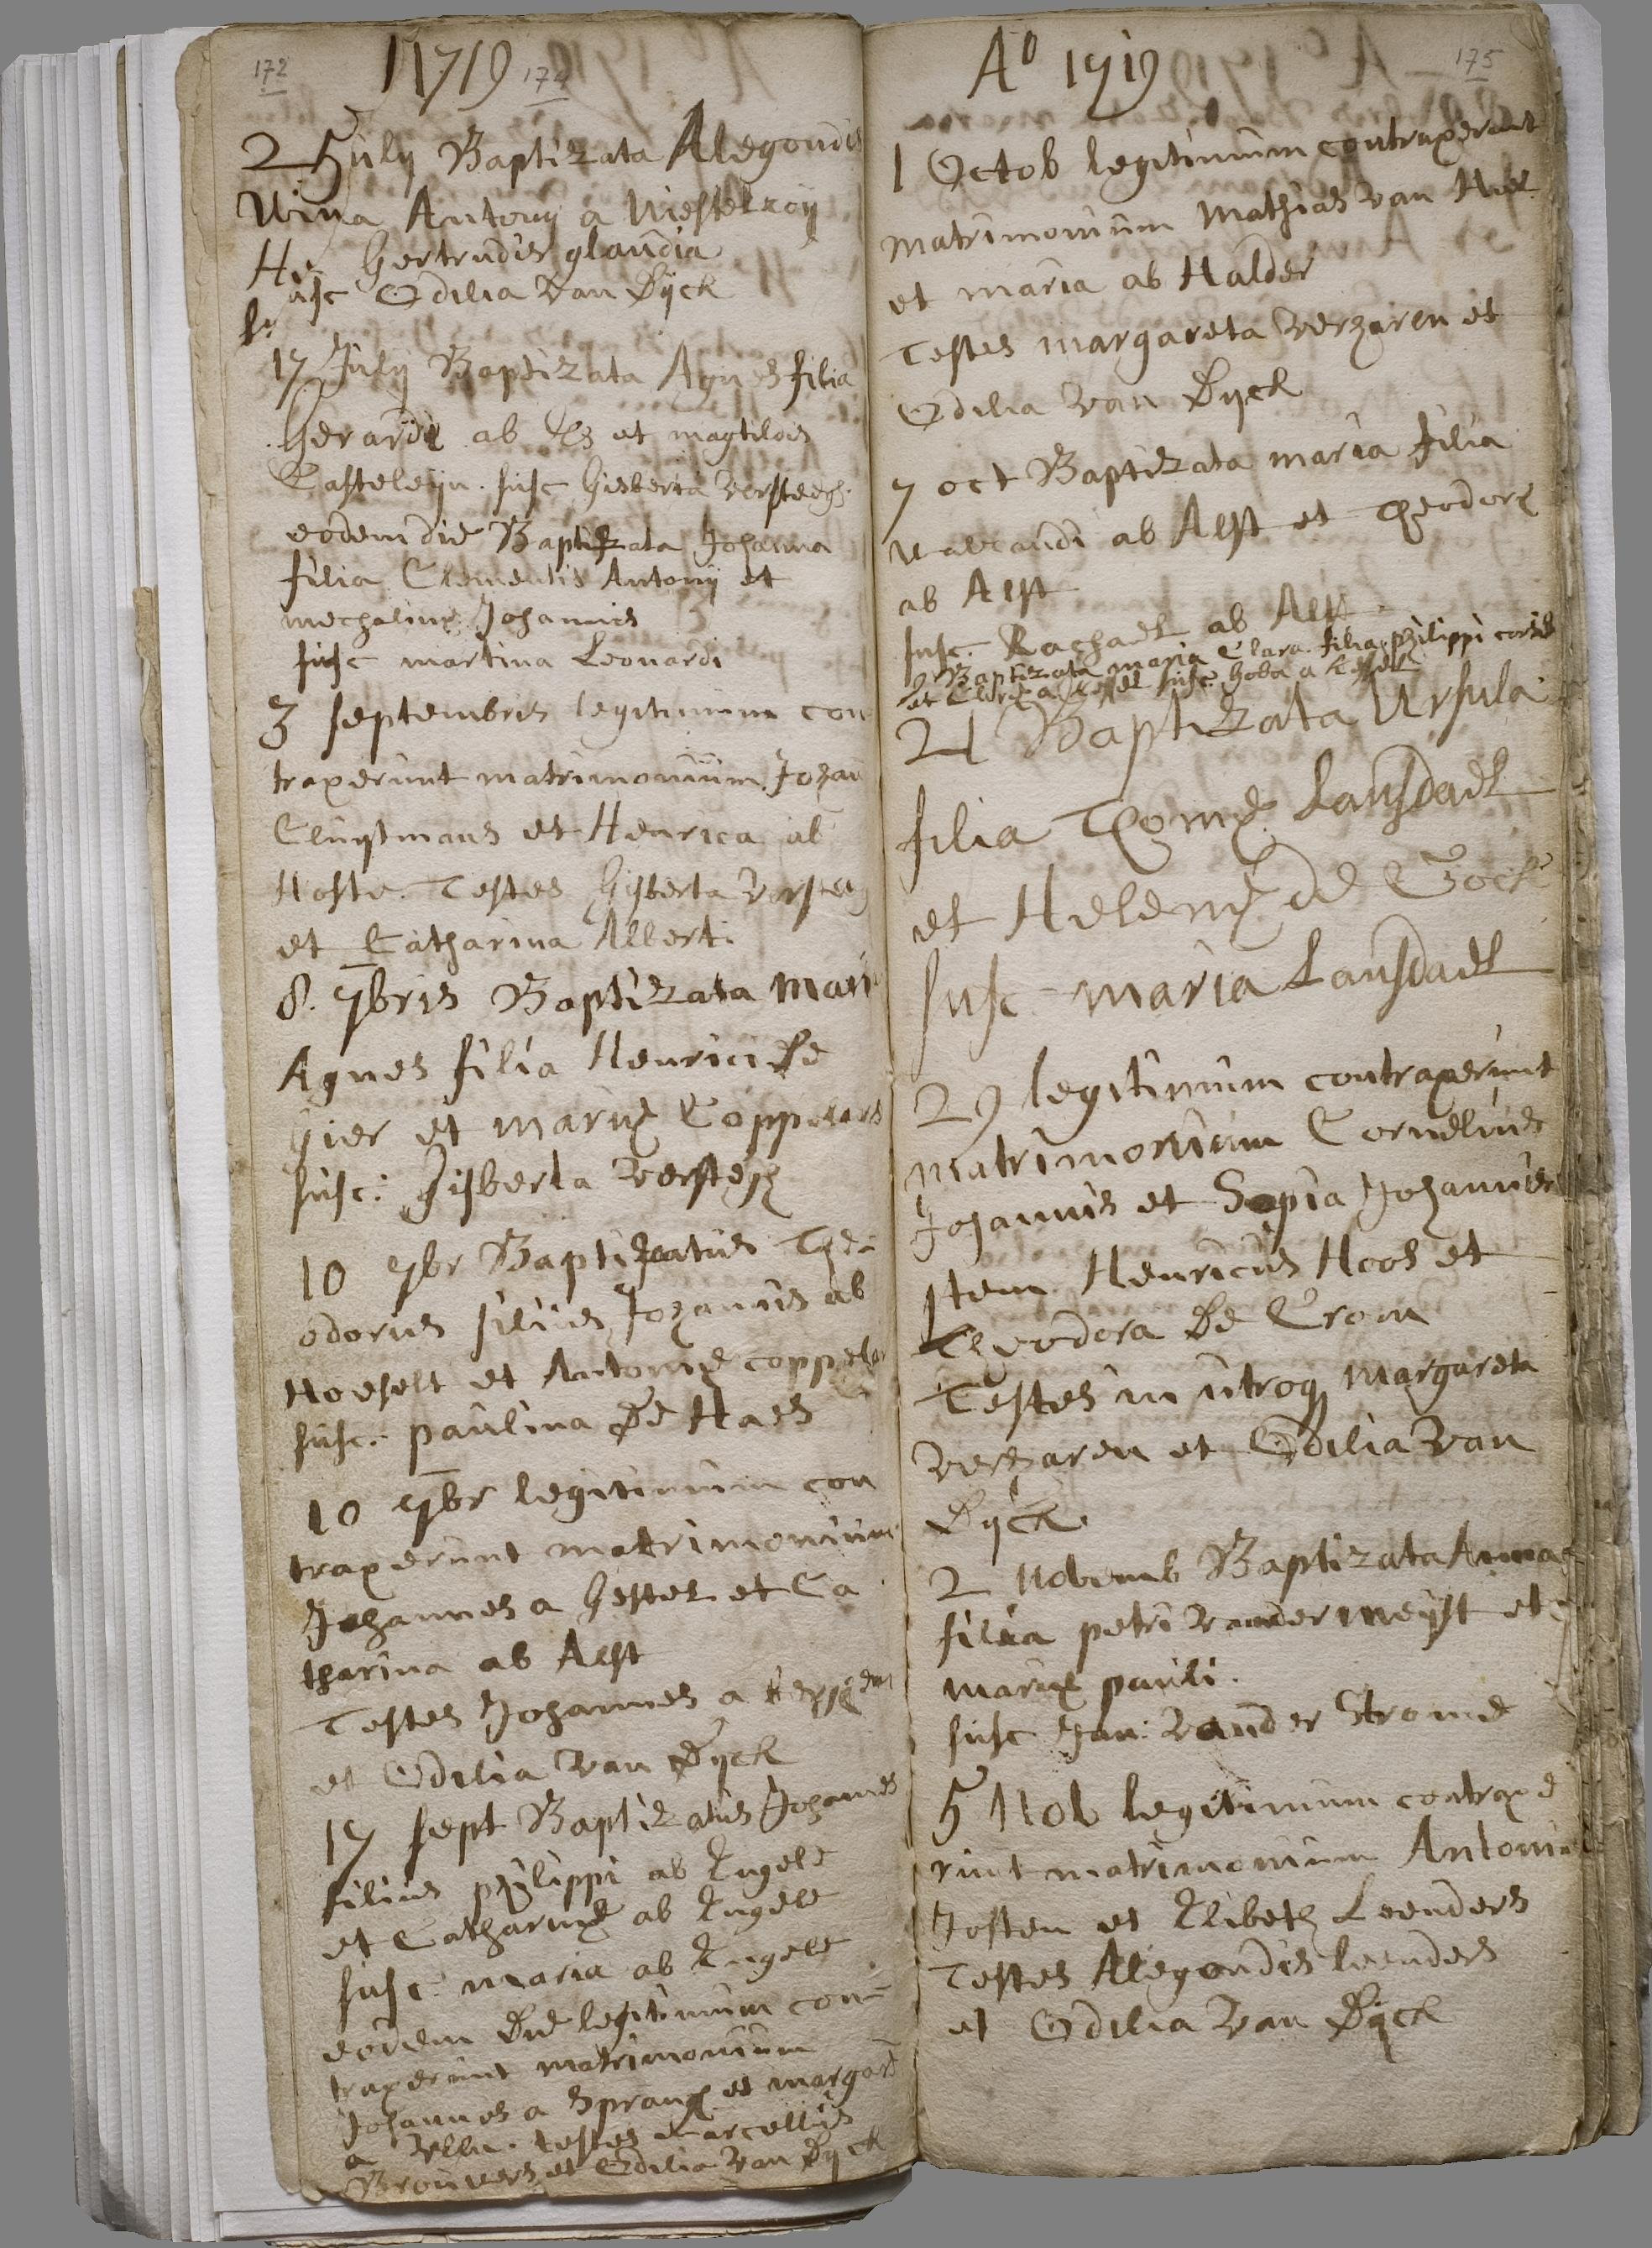 172
1719 174
2 July Baptizata Alegondis
Nina Antony a Westelroij
Hi Gertrudis glaudia
susc Odilia van Dijck
17 July Baptizata Agnes filia
Gerardi ab Es et magtildis
Casteleijn. susc Gisberta versteegh.
eodem die Baptizata Johanna
filia Clementis Antonij et
mechelinæ Johannis
susc martina Leonardi
3 septembris legitimum con
traxerunt matrimonium Johan
Cluijtmans et Henrica ab
Hoste. Testes Gisberta versteeg
et Catharina Alberti
8. 7bris Baptizata mari
Agnes filia Henrici De
gier et mariæ Coppelars
susc: Gisberta versteegh
10 7br Baptizatus The
odorus filius Johannis ab
Hoeselt et Antoniæ coppelar
susc. paulina De Haes
10 7br legitimum con
traxerunt matrimonium
Johannes a Gestel et Ca
tharina ab Alst
Testes Johannes a
et Odilia van Dijck
17 sept Baptizatus Johannes
filius philippi ab Engele
et Catharinæ ab Engele
susc. maria ab Engele
eodem Die legitimum con-
traxerunt matrimonium
Johannes a Sprang et margare
a testes marcellus
Brouwers et Odilia van Dijck
175
Ao 1719
1 Octob legitimum contraxerunt
matrimonium Mathias van
et maria ab Halder
Testes margareta verharen et
Odilia van Dijck
7 oct Baptizata maria filia
ab Alst et Theodoræ
ab Alst
susc. Rachael ab Alst
Baptizata maria Clara filia philippi
et Claræ a Kessel susc. a Kessel
21 Baptizata Ursula
filia Thomæ Lansdael
et Helenæ de Cock
susc maria Lansdael
29 legitimum contraxerunt
matrimonium Cornelius
Johannis et Sopia Johannis
item Henricus Hoos et
Theodora De Crom
Testes in utroq margareta
verharen et Odilia van
Dijck.
2 Novemb Baptizata Anna
filia petri vander meijst et
mariæ pauli.
susc Jan: vander Strome
5 Nob legitimum contraxe
runt matrimonium Antoni
Josten et Elibeth Leenders
Testes Alegondis leenders
et Odilia van Dijck